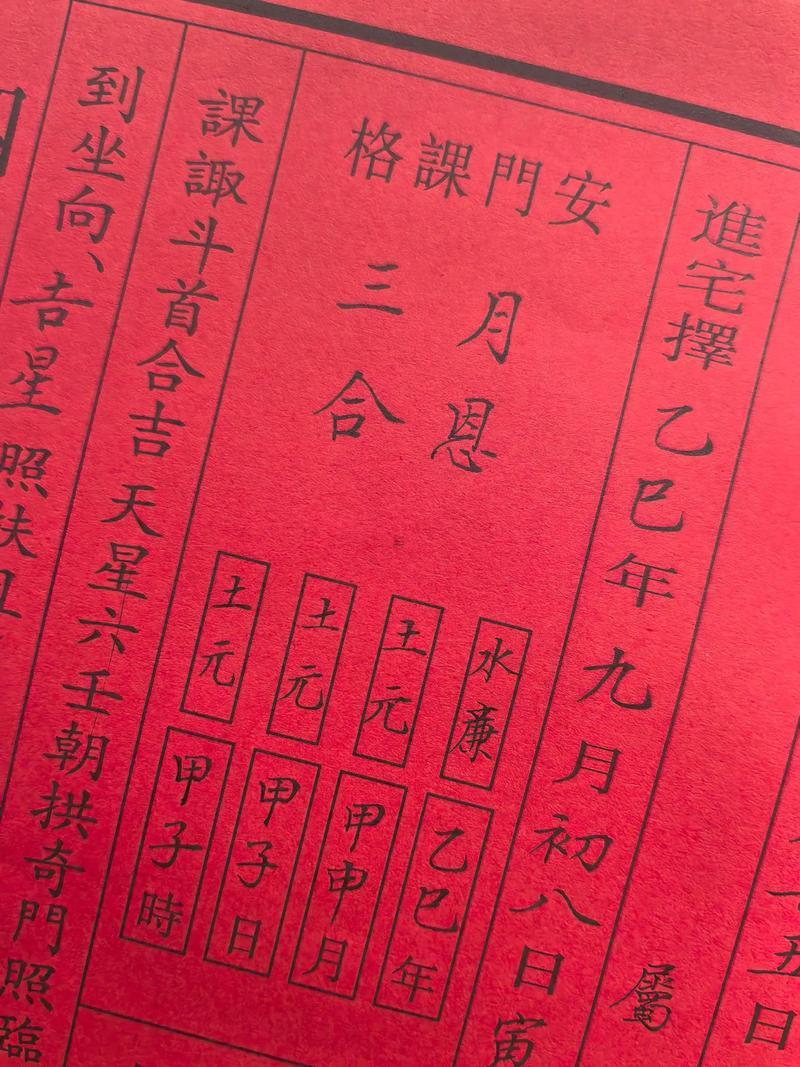 十五日
屬
進宅擇 乙巳年 九月初八日寅
安門課格
月恩
三合
水廉
乙巳年
土元
甲申月
土元
甲子日
土元
甲子時
課諏斗首合吉 天星六壬朝拱奇門照臨
到坐向、吉星 照扶